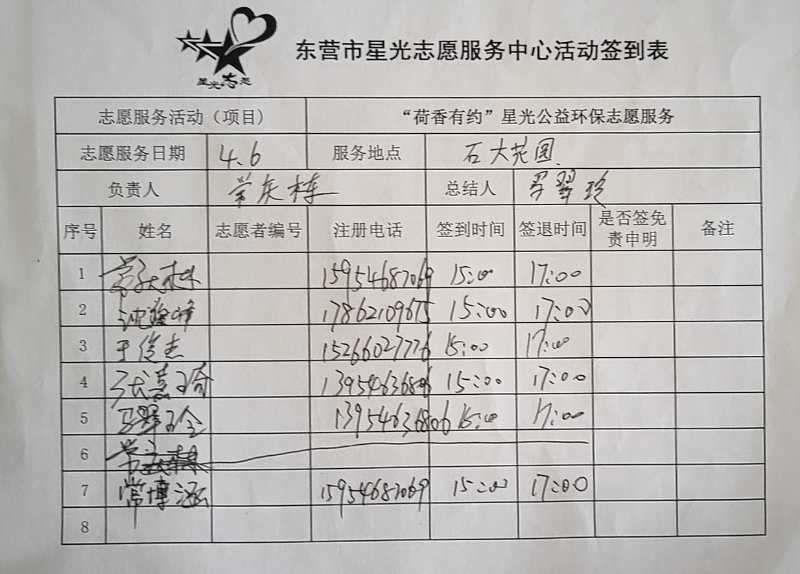 星光志愿
东营市星光志愿服务中心活动签到表
志愿服务活动（项目） “荷香有约”星光公益环保志愿服务
志愿服务日期 4.6 服务地点 石大花园
负责人 常庆栋 总结人 罗翠玲
序号 姓名 志愿者编号 注册电话 签到时间 签退时间 是否签免责申明 备注
1 15954682069 15:00 17:00
2 17862109675 15:00 17:00
3 于俊杰 15266027776 15:00 17:00
4 13954636806 15:00 17:00
5 13954636806 15:00 17:00
6
7 常博涵 15954682069 15:00 17:00
8